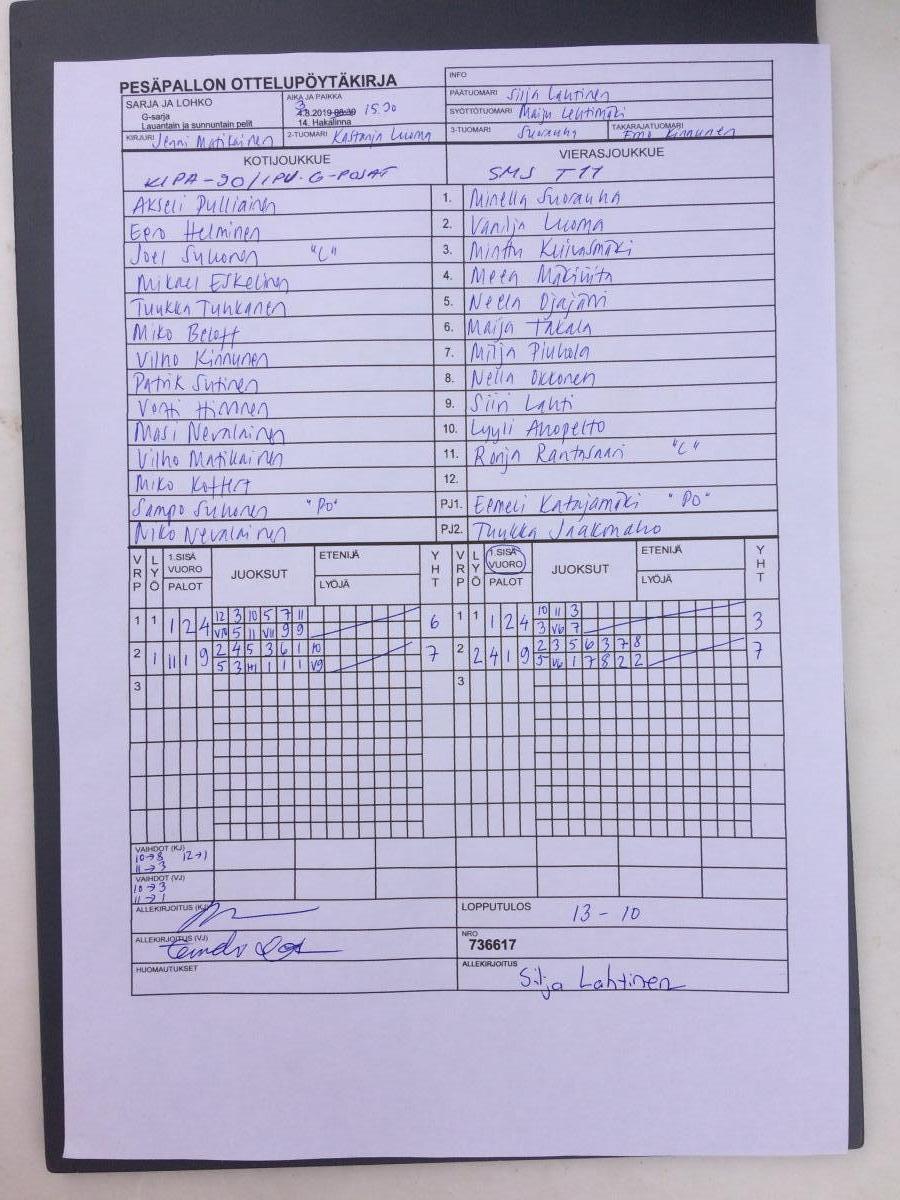 PESÄPALLON OTTELUPÖYTÄKIRJA
INFO
SARJA JA LOHKO
G-sarja
Lauantain ja sunnuntain pelit
AIKA JA PAIKKA
3
4.8.2019 08:30 15.30
14. Hakalinna
PÄÄTUOMARI Silja Lahtinen
SYÖTTÖTUOMARI Maiju Lehtimäki
KIRJURI Jenni Matikainen
2-TUOMARI Kastanja Luoma
3-TUOMARI Suorauha
TAKARAJATUOMARI Eino Kinnunen
KOTIJOUKKUE
KIPA-90/IPV-G-POJAT
VIERASJOUKKUE
SMS T11
Akseli Pulliainen 1. Minella Suorauha
Eero Helminen 2. Vanilja Luoma
Joel Suhonen "C" 3. Minttu Kuivasmäki
Mikael Eskelinen 4. Meea
Tuukka Tuhkanen 5. Neella Ojajärvi
Miko Beloff 6. Maija Takala
Vilho Kinnunen 7. Milja Piuhola
Patrik Sutinen 8. Nella Okkonen
Hirvonen 9. Siiri Lahti
Masi Nevalainen 10. Lyyli Ahopelto
Vilho Matikainen 11. Ronja Rantasaari "C"
Miko 12.
Sampo Suhonen "PO" PJ1. Eemeli Katajamäki "PO"
Niko Nevalainen PJ2. Tuukka Jaakonaho
VRP LYÖ 1.SISÄ VUORO PALOT JUOKSUT ETENIJÄ LYÖJÄ YHT VRP LYÖ 1.SISÄ VUORO PALOT JUOKSUT ETENIJÄ LYÖJÄ YHT
1 1 1 2 4 12 3 10 5 7 11 6 1 1 1 2 4 10 11 3 3
V10 5 11 V11 9 9 3 V6 7
2 1 11 1 9 2 4 5 3 6 1 10 7 2 2 4 1 9 2 3 5 6 3 7 8 7
5 3 1 1 1 V9 5 V6 1 7 8 2 2
3 3
VAIHDOT (KJ)
10→8 12→1
11→3
VAIHDOT (VJ)
10→3
11→1
ALLEKIRJOITUS (KJ)
LOPPUTULOS 13 - 10
ALLEKIRJOITUS (VJ)
NRO
736617
HUOMAUTUKSET
ALLEKIRJOITUS
Silja Lahtinen